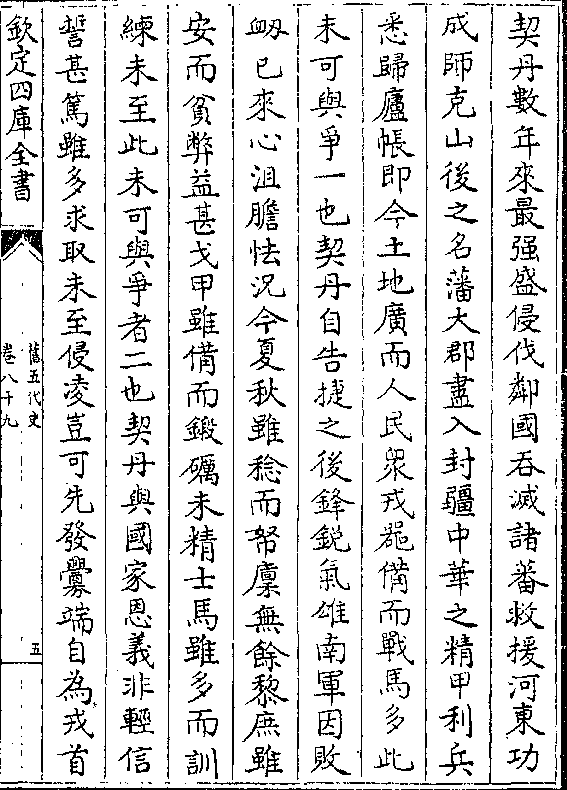 契丹數年來最强盛侵伐鄰國吞滅諸蕃救援河東功
成師克山後之名藩大郡盡入封疆中華之精甲利兵
悉歸廬帳即今土地廣而人民衆戎器備而戰馬多此
未可與爭一也契丹自告捷之後鋒銳氣雄南軍因敗
衂已來心沮膽怯況今夏秋雖稔而帑廩無餘黎庶雖
安而貧弊益甚戈甲雖備而鍛礪未精士馬雖多而訓
練未至此未可與爭者二也契丹與國家恩義非輕信
誓甚篤雖多求取未至侵凌豈可先發釁端自為戎首
欽定四庫全書
舊五代史
卷八十九
五